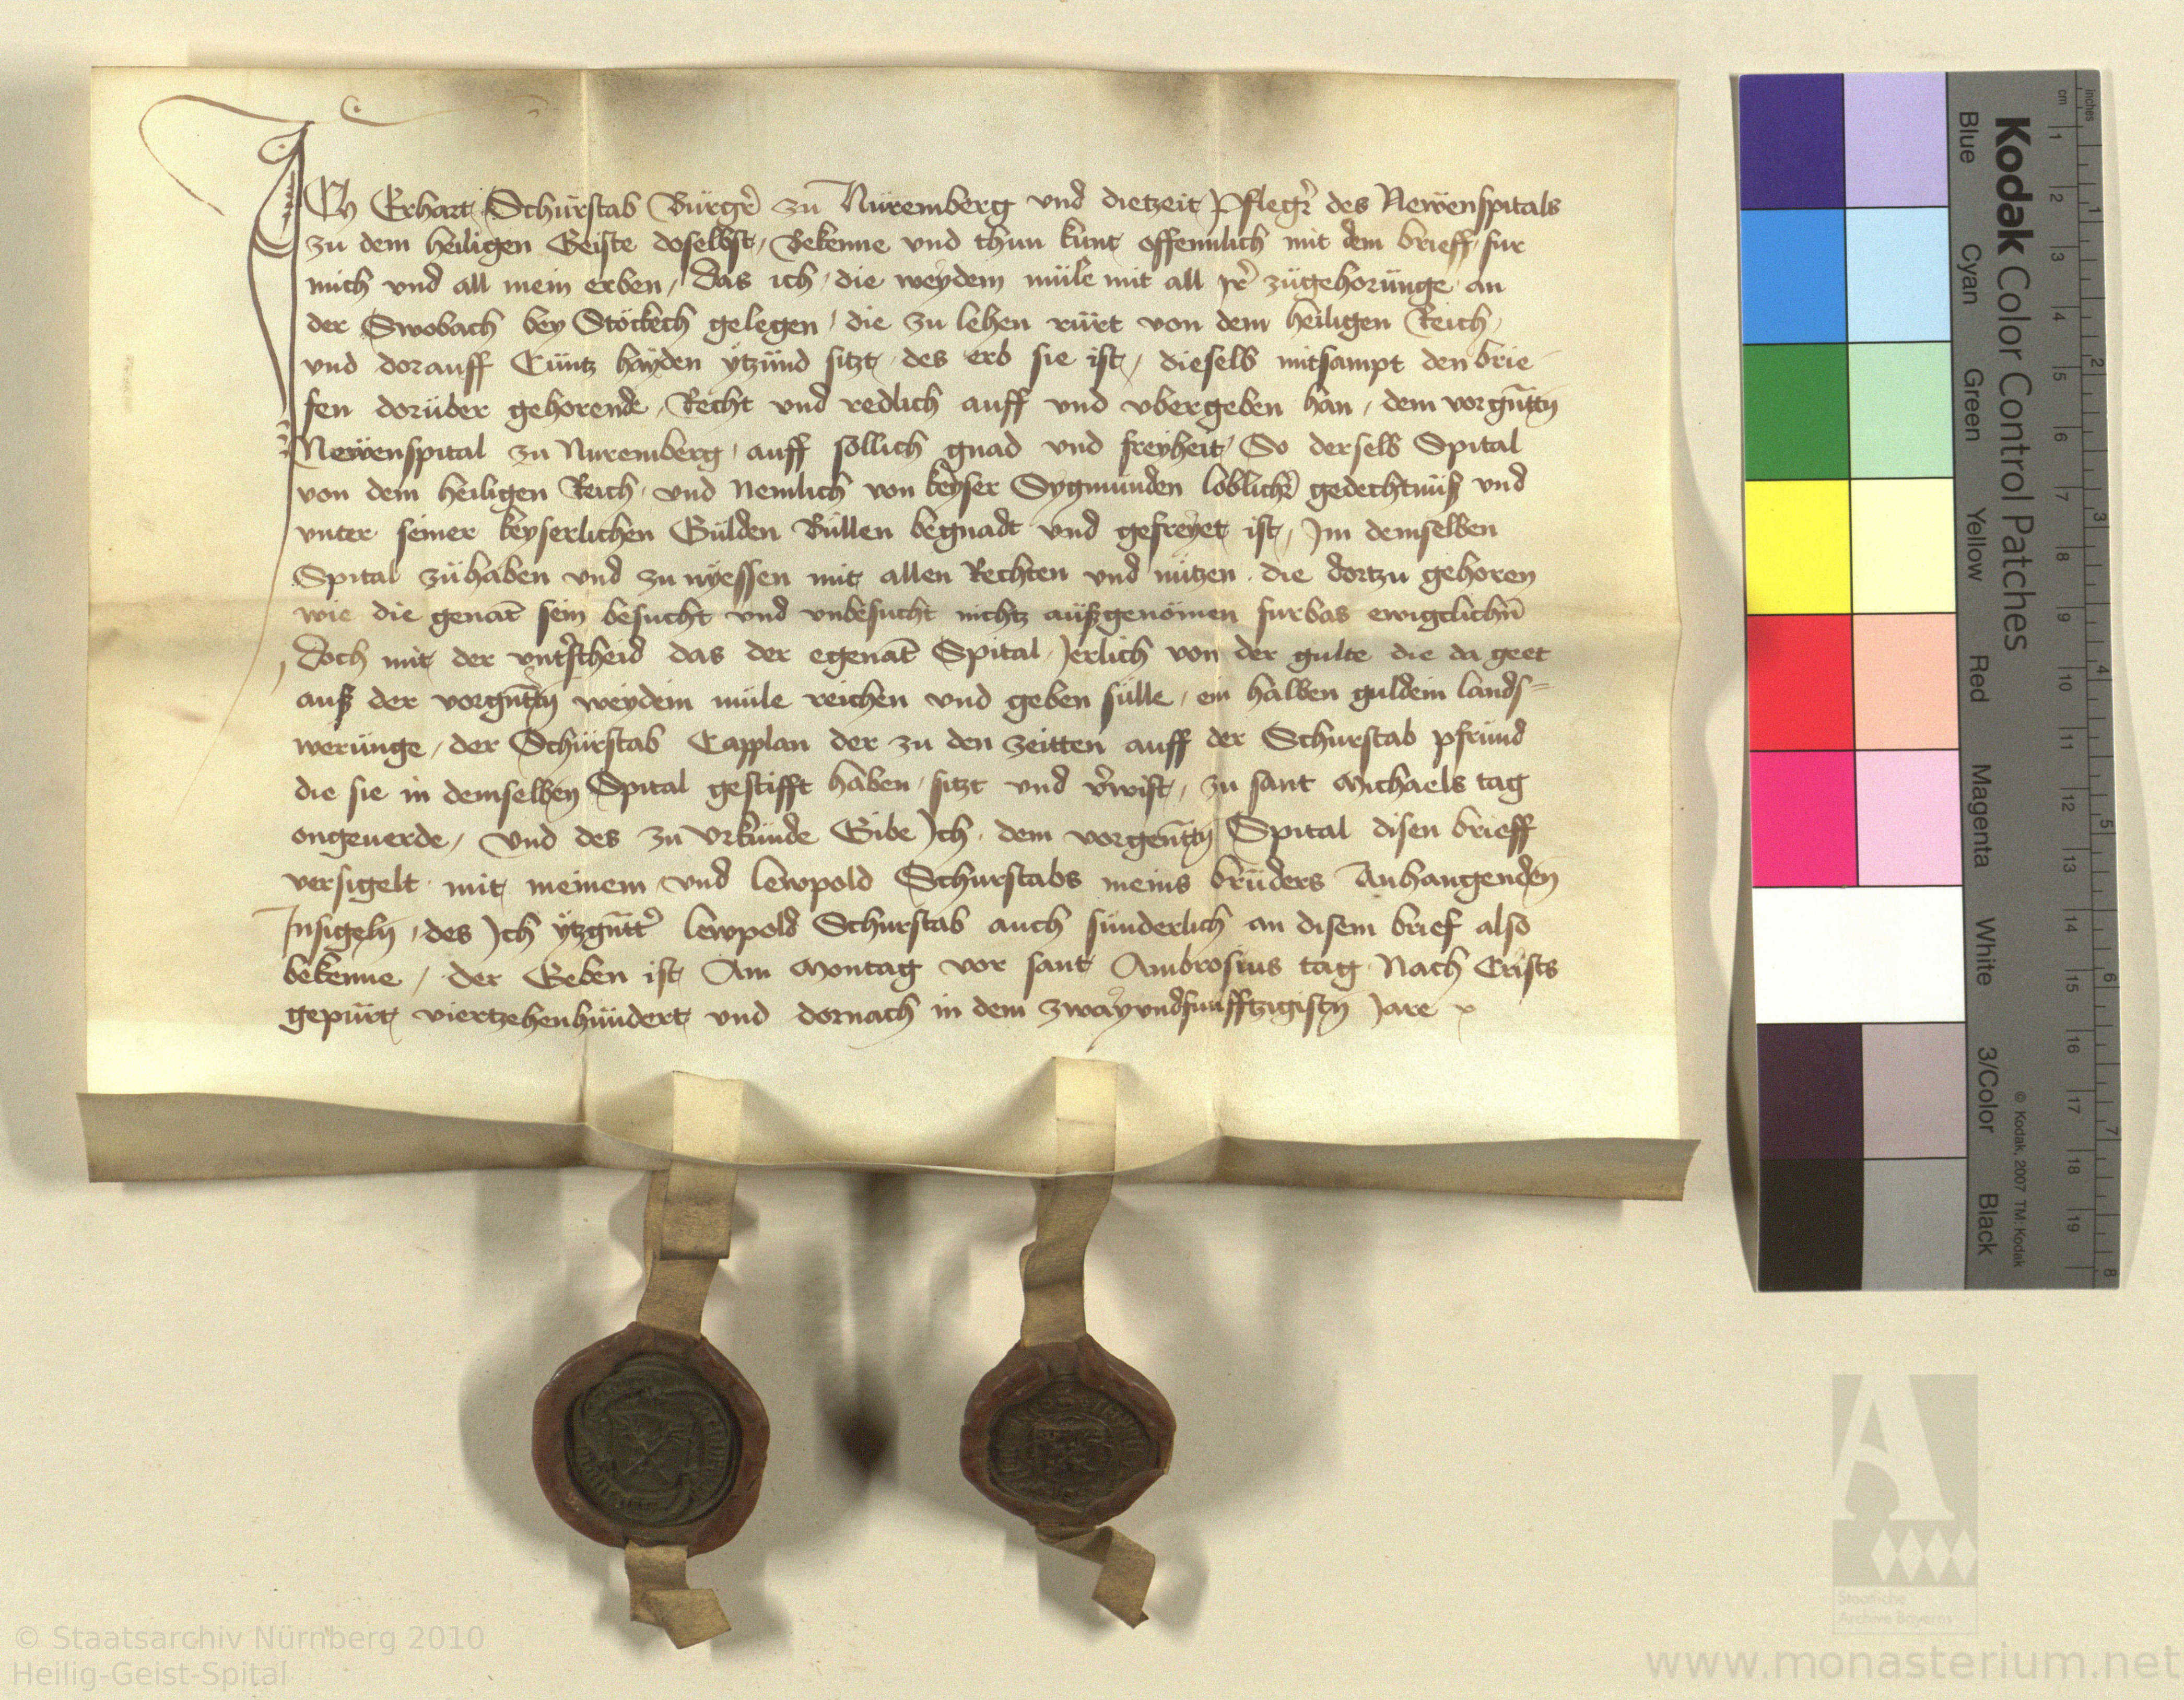 ICh Erhart Schürstab Bürgr̄ zu Nüremberg vnd dietzeit Pflegr̄ des Newenspitals
zu dem heiligen Geiste doselbst, Bekenne vnd thun kunt offennlich mit dem brieff fur
mich vnd all mein erben, das ich die weydem müle mit all yr̄ zugehorünge an
der Swobach bey Stöckech gelegen, die zu lehen rürt von dem heiligen Reich,
vnd dorauff Cüntz häyden ytzünd sitzt, des erb sie ist, dieselb mitsampt den brie
fen dorüber gehorende, Recht vnd redlich auff vnd vbergeben han, dem vorgn̄tn̄
Newenspital zu Nuremberg, auff söllich gnad vnd freyheit, So derselb Spital
von dem heiligen Reich vnd Nemlich von keyser Sygmunden loblichr̄ gedechtnüß vnd
vnter seiner keyserlichen Gülden Bullen begnadt vnd gefreyet ist, Im demselben
Spital zühaben vnd zu nyessen mit allen Rechten vnd nützen die dortzu gehoren
wie die genāt sein besucht vnd vnbesucht nichtz außgenōmen furbas ewigclichn̄
Doch mit der vntr̄scheid das der egenāt Spital Jerlich von der gulte die da geet
auß der vorgn̄tn̄ weydem müle reichen vnd geben sülle, ein halben guldein lands=
werünge, der Schürstab Capplan der zu den zeitten auff der Schurstab pfründ
die sie in demselben Spital gestifft haben, sitzt vnd v̄wist, zu sant Michaels tag
ongeuerde, Vnd des zu Vrkünde Gibe Ich dem vorgen̄tn̄ Spital disen brieff
versigelt mit meinem vnd lewpold Schurstabs meins brüders Anhangenden
Insigeln, des Ich ytzgn̄tr̄ lewpold Schurstab auch sünderlich an disem brief also
bekenne, der Geben ist Am Montag vor sant Ambrosius tag Nach Crists
gepürt viertzehenhündert vnd dornach in dem zwayvndfunfftzigistn̄ Jare
Kodak Color Control Patches
Blue Cyan Green Yellow Red Magenta White 3/Color Black
© Kodak, 2007 TM: Kodak
cm 1 2 3 4 5 6 7 8 9 10 11 12 13 14 15 16 17 18 19
inches 1 2 3 4 5 6 7 8
Staatliche
Archive Bayerns
© Staatsarchiv Nürnberg 2010
Heilig-Geist-Spital
www.monasterium.net